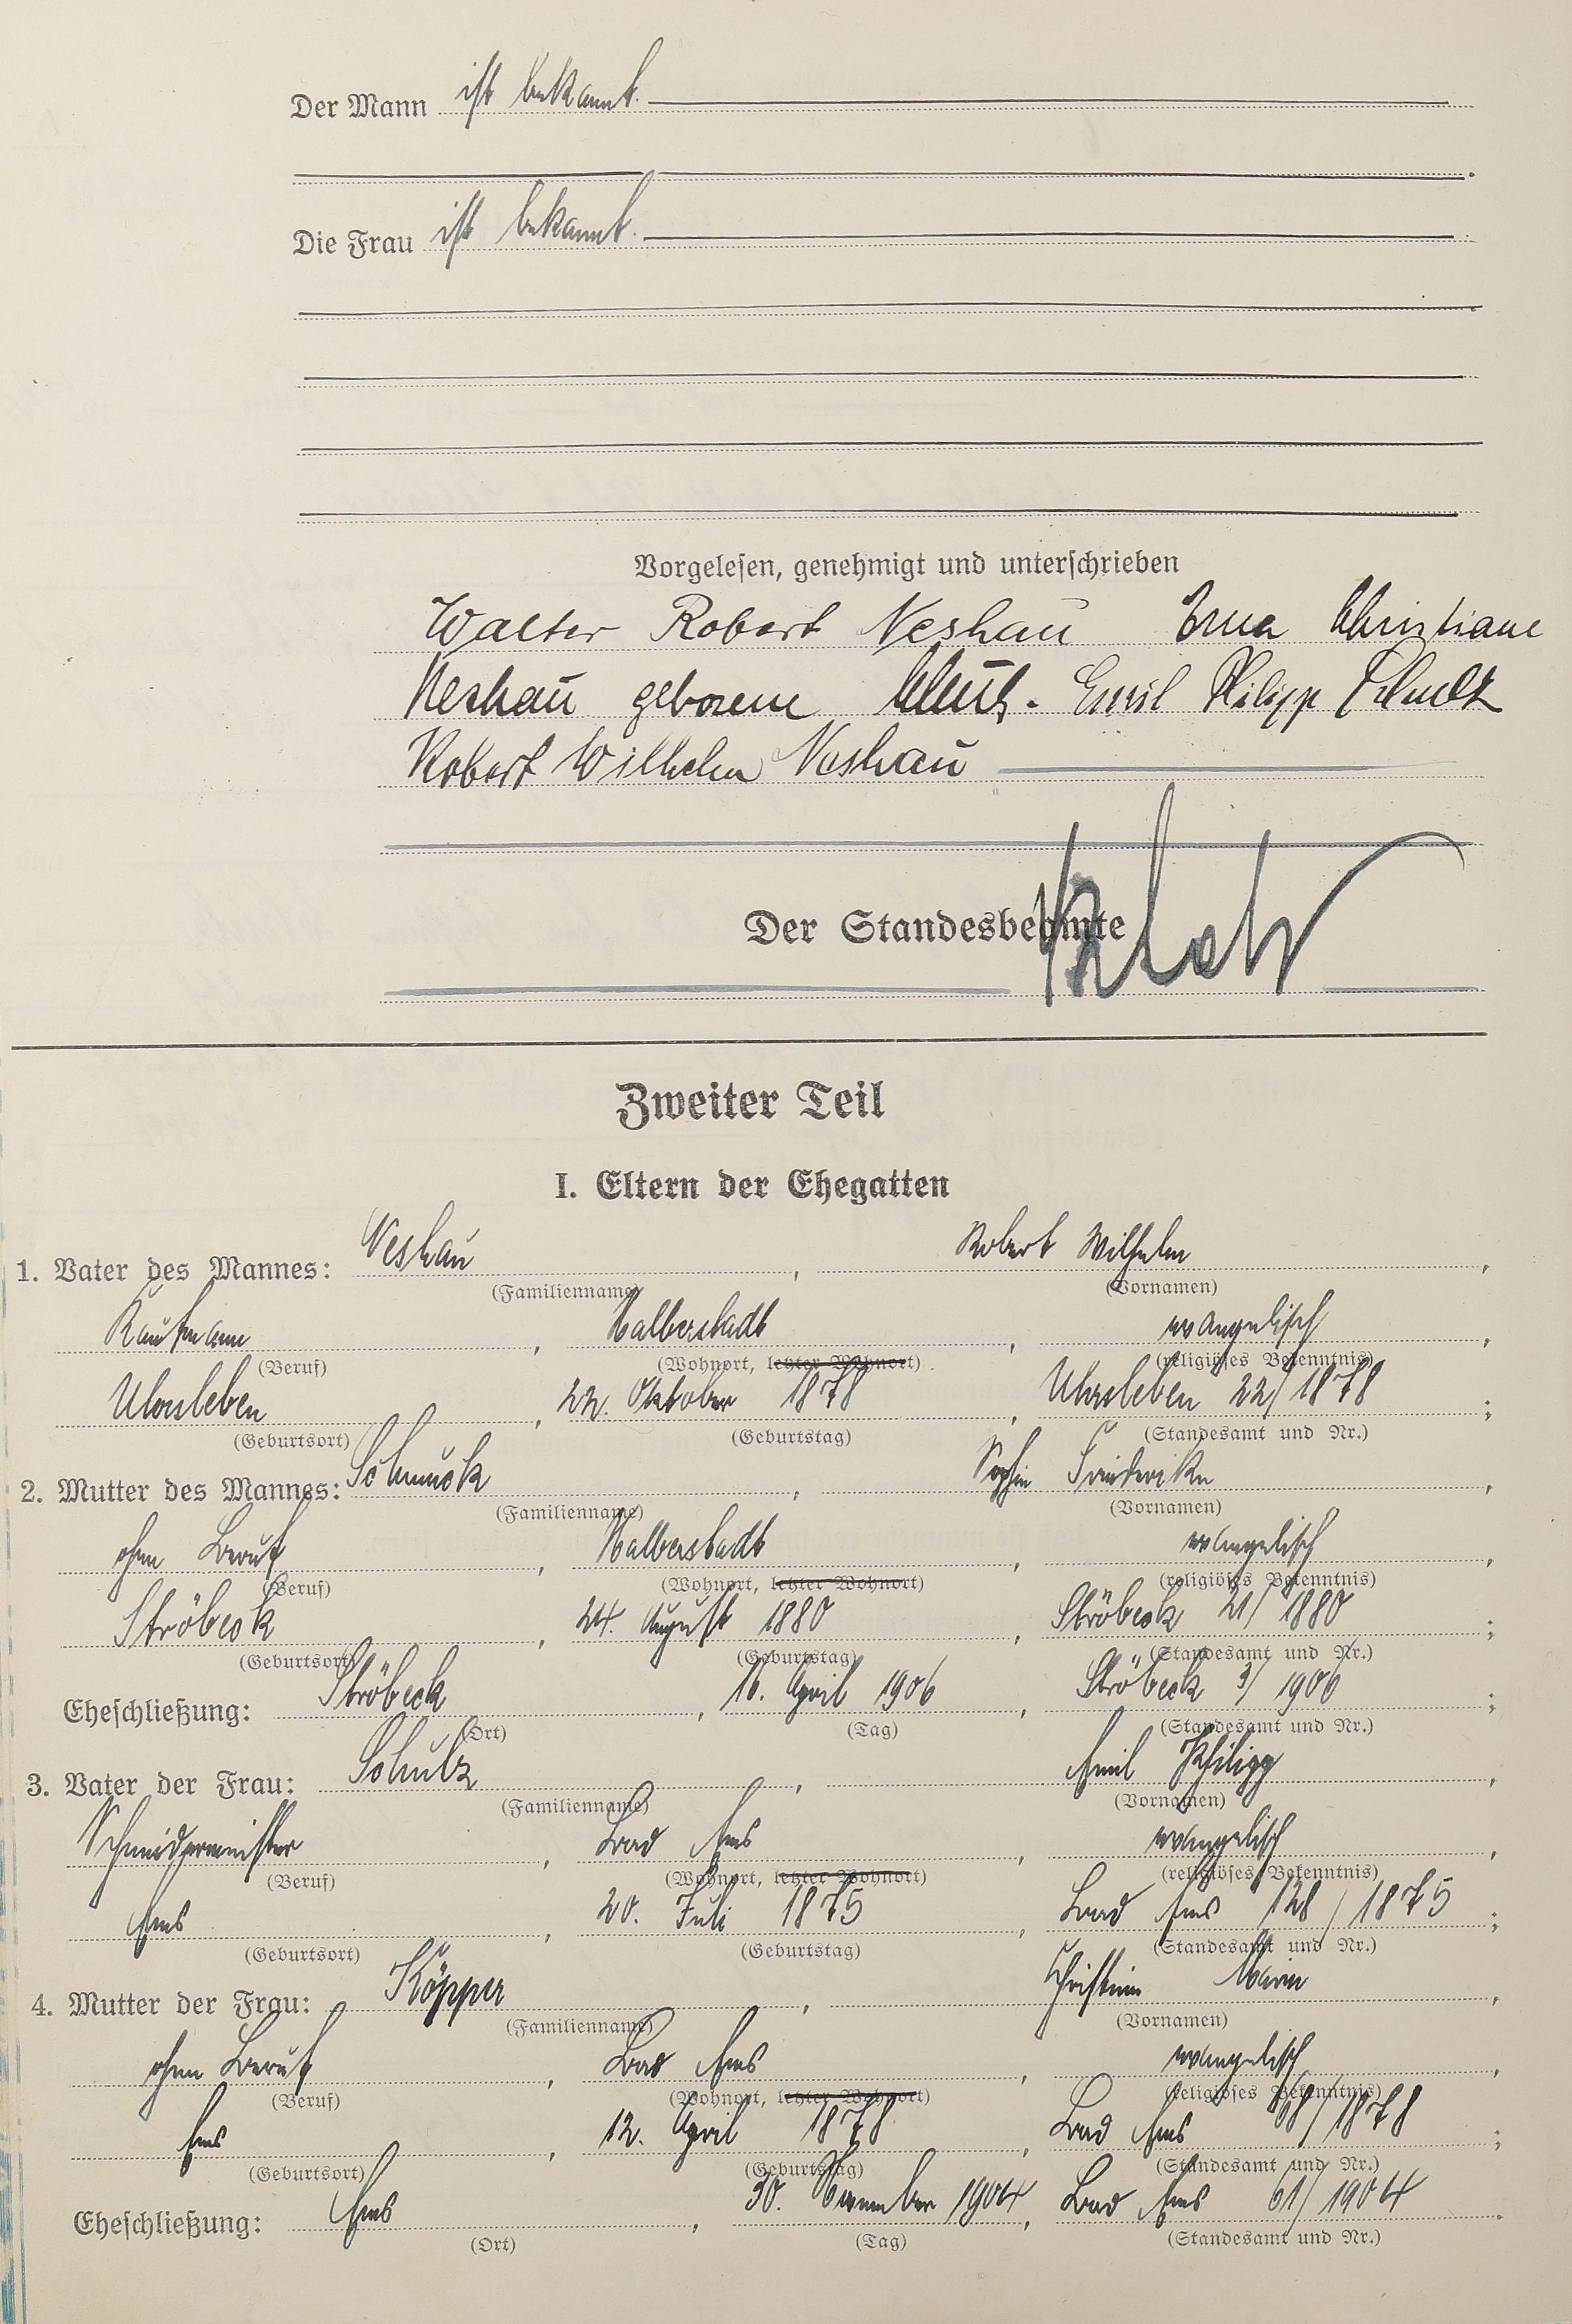 Der Mann ist bekannt.
Die Frau ist bekannt.
Vorgelesen, genehmigt und unterschrieben
Walter Robert Neshau Erna Christiane
Neshau geborene Emil Philipp Schulz
Robert Wilhelm Neshau
Der Standesbeamte
Zweiter Teil
I. Eltern der Ehegatten
1. Vater des Mannes: Neshau, Robert Wilhelm,
(Familienname) (Vornamen)
Kaufmann, Halberstadt, evangelisch,
(Beruf) (Wohnort, letzter Wohnort) (religiöses Bekenntnis)
Uhrsleben, 22. Oktober 1878, Uhrsleben 22/1878;
(Geburtsort) (Geburtstag) (Standesamt und Nr.)
2. Mutter des Mannes: Schmuck, Sophie Friederike,
(Familienname) (Vornamen)
ohne Beruf, Halberstadt, evangelisch,
(Beruf) (Wohnort, letzter Wohnort) (religiöses Bekenntnis)
Ströbeck, 24. August 1880, Ströbeck 21/1880;
(Geburtsort) (Geburtstag) (Standesamt und Nr.)
Eheschließung: Ströbeck, 16. April 1906, Ströbeck 3/1906;
(Ort) (Tag) (Standesamt und Nr.)
3. Vater der Frau: Schulz, Emil Philipp,
(Familienname) (Vornamen)
Schneidermeister, Bad Ems, evangelisch,
(Beruf) (Wohnort, letzter Wohnort) (religiöses Bekenntnis)
Ems, 20. Juli 1875, Bad Ems 128/1875;
(Geburtsort) (Geburtstag) (Standesamt und Nr.)
4. Mutter der Frau: Köpper, Christine Marie,
(Familienname) (Vornamen)
ohne Beruf, Bad Ems, evangelisch,
(Beruf) (Wohnort, letzter Wohnort) (religiöses Bekenntnis)
Ems, 12. April 1878, Bad Ems 68/1878;
(Geburtsort) (Geburtstag) (Standesamt und Nr.)
Eheschließung: Ems, 30. November 1904, Bad Ems 61/1904.
(Ort) (Tag) (Standesamt und Nr.)